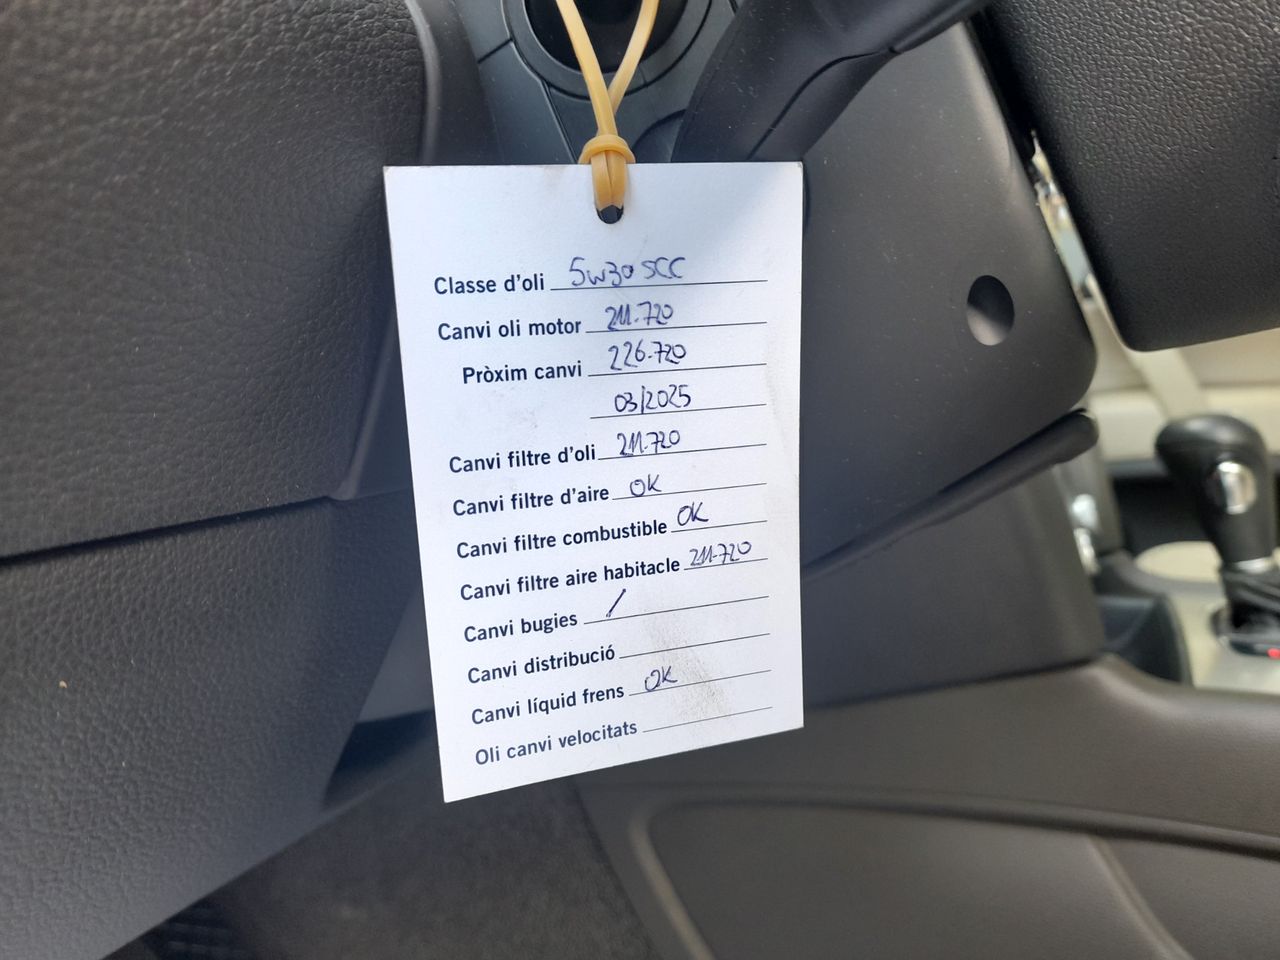 Classe d'oli 5w30 SCC
Canvi oli motor 211.720
Pròxim canvi 226.720
03/2025
Canvi filtre d'oli 211.720
Canvi filtre d'aire OK
Canvi filtre combustible OK
Canvi filtre aire habitacle 211.720
Canvi bugies /
Canvi distribució
Canvi líquid frens OK
Oli canvi velocitats